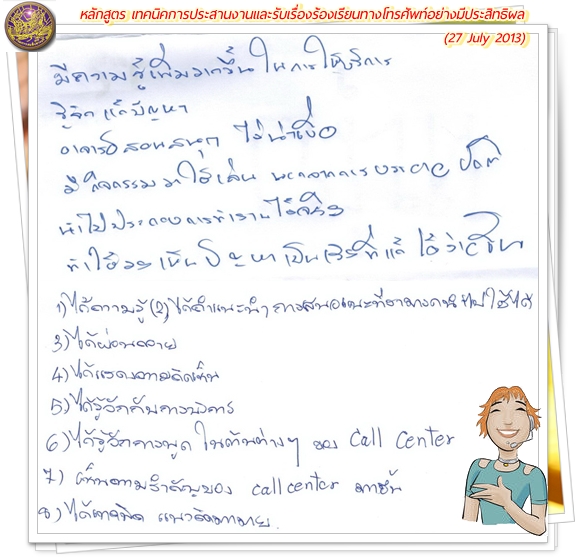 หลักสูตร เทคนิคการประสานงานและรับเรื่องร้องเรียนทางโทรศัพท์อย่างมีประสิทธิผล
(27 July 2013)
มีความรู้เพิ่มมากขึ้น ในการให้บริการ
รู้จักแก้ปัญหา
อาจารย์สอนสนุก ไม่น่าเบื่อ
มีกิจกรรมมาให้เล่น นอกจากการบรรยาย ปกติ
นำไปประกอบการทำงานได้จริง
ทำให้มองเห็นปัญหาเป็นเรื่องที่แก้ ได้ว่า
1) ได้ความรู้ (2) ได้คำแนะนำ การเสนอแนะที่สามารถนำไปใช้ได้
3) ได้ผ่อนคลาย
4) ได้แสดงความคิดเห็น
5) ได้รู้จักกับการบริการ
6) ได้รู้จักการพูด ในด้านต่างๆ ของ Call Center
7) เห็นความสำคัญของ call center มากขึ้น
8) ได้เทคนิค แนวคิด